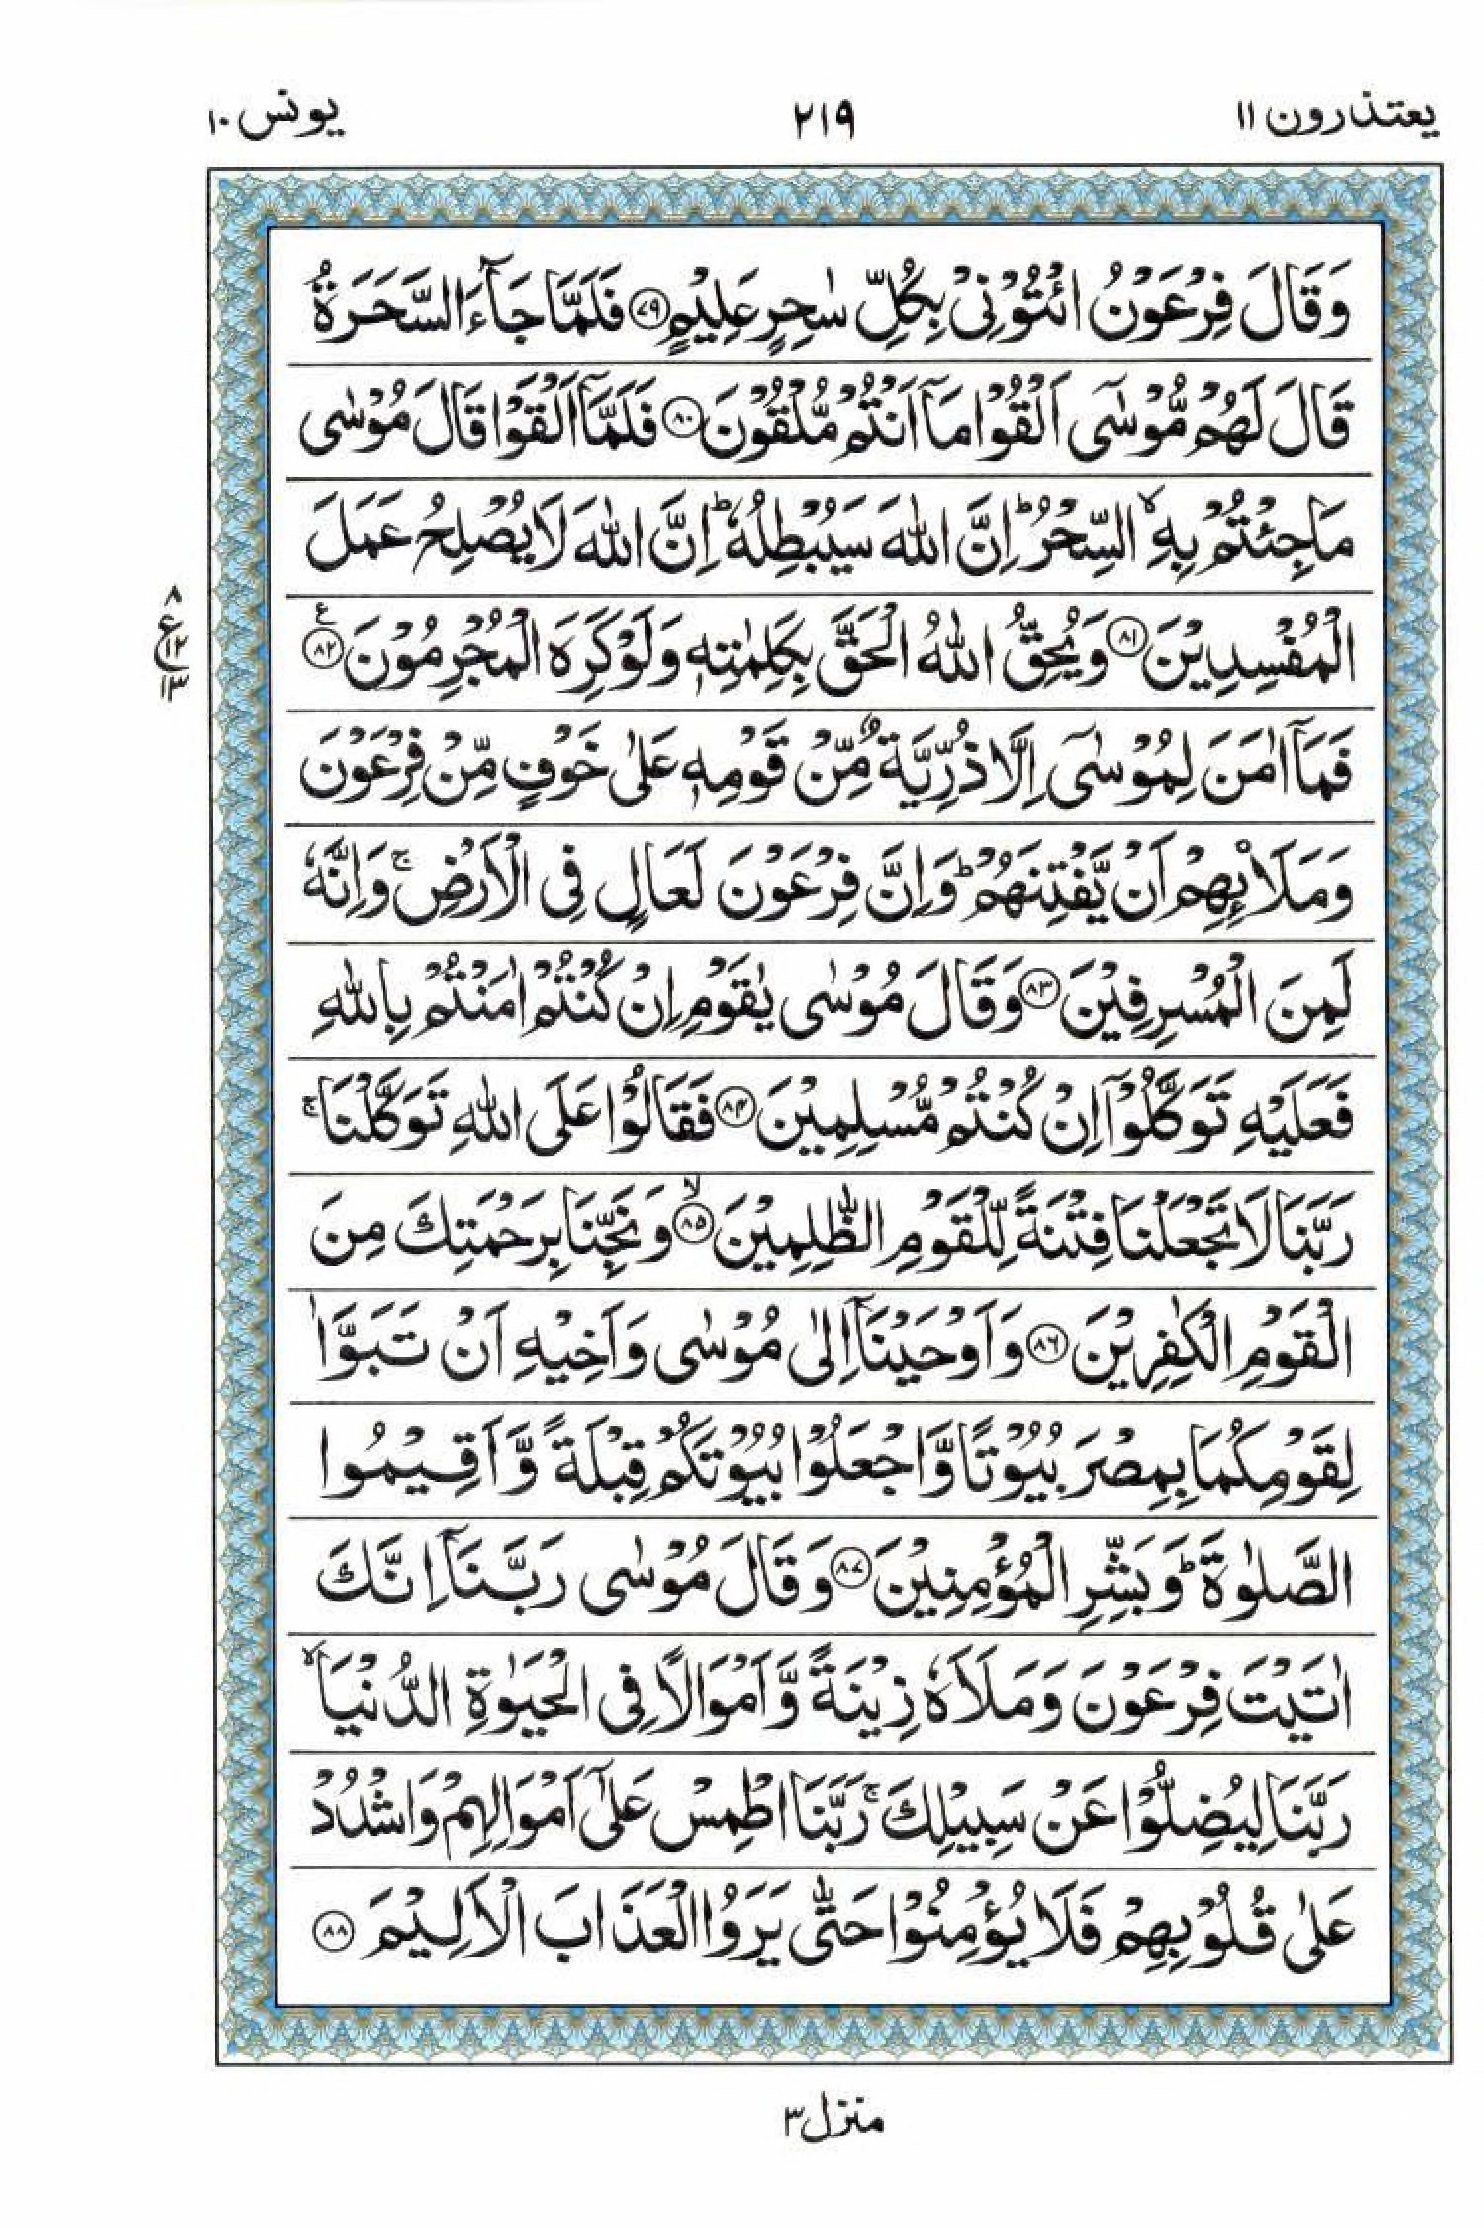 يعتذرون ١١
٢١٩
يونس ١٠
وَقَالَ فِرْعَوْنُ ائْتُوْنِيْ بِكُلِّ سٰحِرٍ عَلِيْمٍ ﴿۷۹﴾ فَلَمَّا جَآءَ السَّحَرَةُ
قَالَ لَهُمْ مُّوْسٰٓى اَلْقُوْا مَآ اَنْتُمْ مُّلْقُوْنَ ﴿۸۰﴾ فَلَمَّآ اَلْقَوْا قَالَ مُوْسٰى
مَا جِئْتُمْ بِهِ ۙ السِّحْرُ ؕ اِنَّ اللّٰهَ سَيُبْطِلُهٗ ؕ اِنَّ اللّٰهَ لَا يُصْلِحُ عَمَلَ
الْمُفْسِدِيْنَ ﴿۸۱﴾ وَيُحِقُّ اللّٰهُ الْحَقَّ بِكَلِمٰتِهٖ وَلَوْ كَرِهَ الْمُجْرِمُوْنَ ﴿۸۲﴾ ع
٨
ع ١٢
١٣
فَمَآ اٰمَنَ لِمُوْسٰٓى اِلَّا ذُرِّيَّةٌ مِّنْ قَوْمِهٖ عَلٰى خَوْفٍ مِّنْ فِرْعَوْنَ
وَمَلَا۟ئِهِمْ اَنْ يَّفْتِنَهُمْ ؕ وَاِنَّ فِرْعَوْنَ لَعَالٍ فِى الْاَرْضِ ۚ وَاِنَّهٗ
لَمِنَ الْمُسْرِفِيْنَ ﴿۸۳﴾ وَقَالَ مُوْسٰى يٰقَوْمِ اِنْ كُنْتُمْ اٰمَنْتُمْ بِاللّٰهِ
فَعَلَيْهِ تَوَكَّلُوْٓا اِنْ كُنْتُمْ مُّسْلِمِيْنَ ﴿۸۴﴾ فَقَالُوْا عَلَى اللّٰهِ تَوَكَّلْنَا ۚ
رَبَّنَا لَا تَجْعَلْنَا فِتْنَةً لِّلْقَوْمِ الظّٰلِمِيْنَ ﴿۸۵﴾ ۙ وَنَجِّنَا بِرَحْمَتِكَ مِنَ
الْقَوْمِ الْكٰفِرِيْنَ ﴿۸۶﴾ وَاَوْحَيْنَآ اِلٰى مُوْسٰى وَاَخِيْهِ اَنْ تَبَوَّاٰ
لِقَوْمِكُمَا بِمِصْرَ بُيُوْتًا وَّاجْعَلُوْا بُيُوْتَكُمْ قِبْلَةً وَّاَقِيْمُوا
الصَّلٰوةَ ؕ وَبَشِّرِ الْمُؤْمِنِيْنَ ﴿۸۷﴾ وَقَالَ مُوْسٰى رَبَّنَآ اِنَّكَ
اٰتَيْتَ فِرْعَوْنَ وَمَلَاَهٗ زِيْنَةً وَّاَمْوَالًا فِى الْحَيٰوةِ الدُّنْيَا ۙ
رَبَّنَا لِيُضِلُّوْا عَنْ سَبِيْلِكَ ۚ رَبَّنَا اطْمِسْ عَلٰٓى اَمْوَالِهِمْ وَاشْدُدْ
عَلٰى قُلُوْبِهِمْ فَلَا يُؤْمِنُوْا حَتّٰى يَرَوُا الْعَذَابَ الْاَلِيْمَ ﴿۸۸﴾
منزل ٣